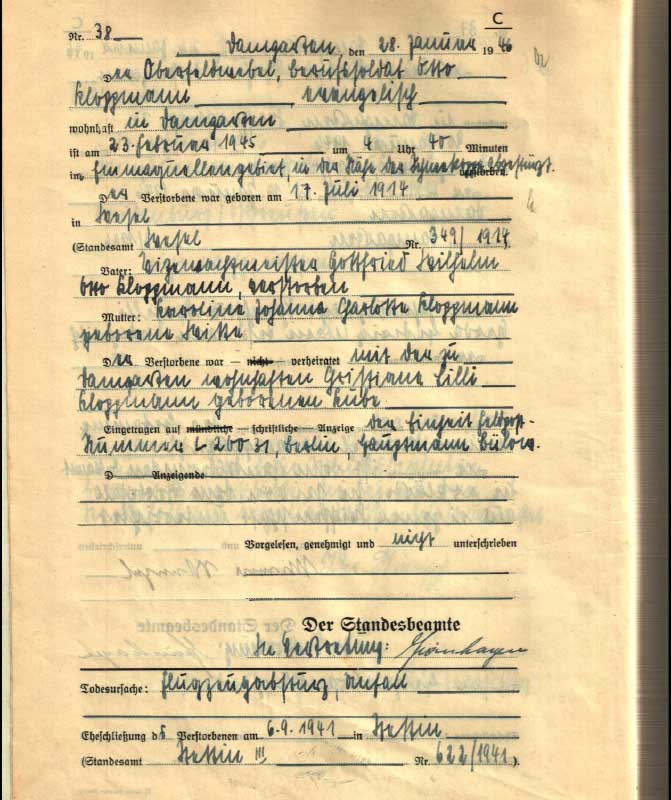 C
Nr. 38
Damgarten, den 28. Januar 1946
Der Oberfeldwebel, Berufssoldat Otto
Kloppmann evangelisch
wohnhaft in Damgarten
ist am 23. Februar 1945 um 4 Uhr 40 Minuten
im Emmaquellengebiet, in der Nähe der abgestürzt.
verstorben.
Der Verstorbene war geboren am 17. Juli 1914
in Wesel
(Standesamt Wesel Nr. 349/1914)
Vater: Vizewachtmeister Gottfried Wilhelm
Otto Kloppmann, verstorben
Mutter: Karoline Johanna Charlotte Kloppmann
geborene Witte
Der Verstorbene war – nicht – verheiratet mit der zu
Damgarten wohnhaften Christiane Lilli
Kloppmann geborenen Kube
Eingetragen auf mündliche – schriftliche – Anzeige der Einheit Feldpost-
Nummer L 20031, Berlin, Hauptmann Bülow.
D Anzeigende
Vorgelesen, genehmigt und nicht unterschrieben
Der Standesbeamte
In Vertretung:
Todesursache: Flugzeugabsturz,
Eheschließung des Verstorbenen am 6.9.1941 in Stettin
(Standesamt Stettin III Nr. 622/1941).